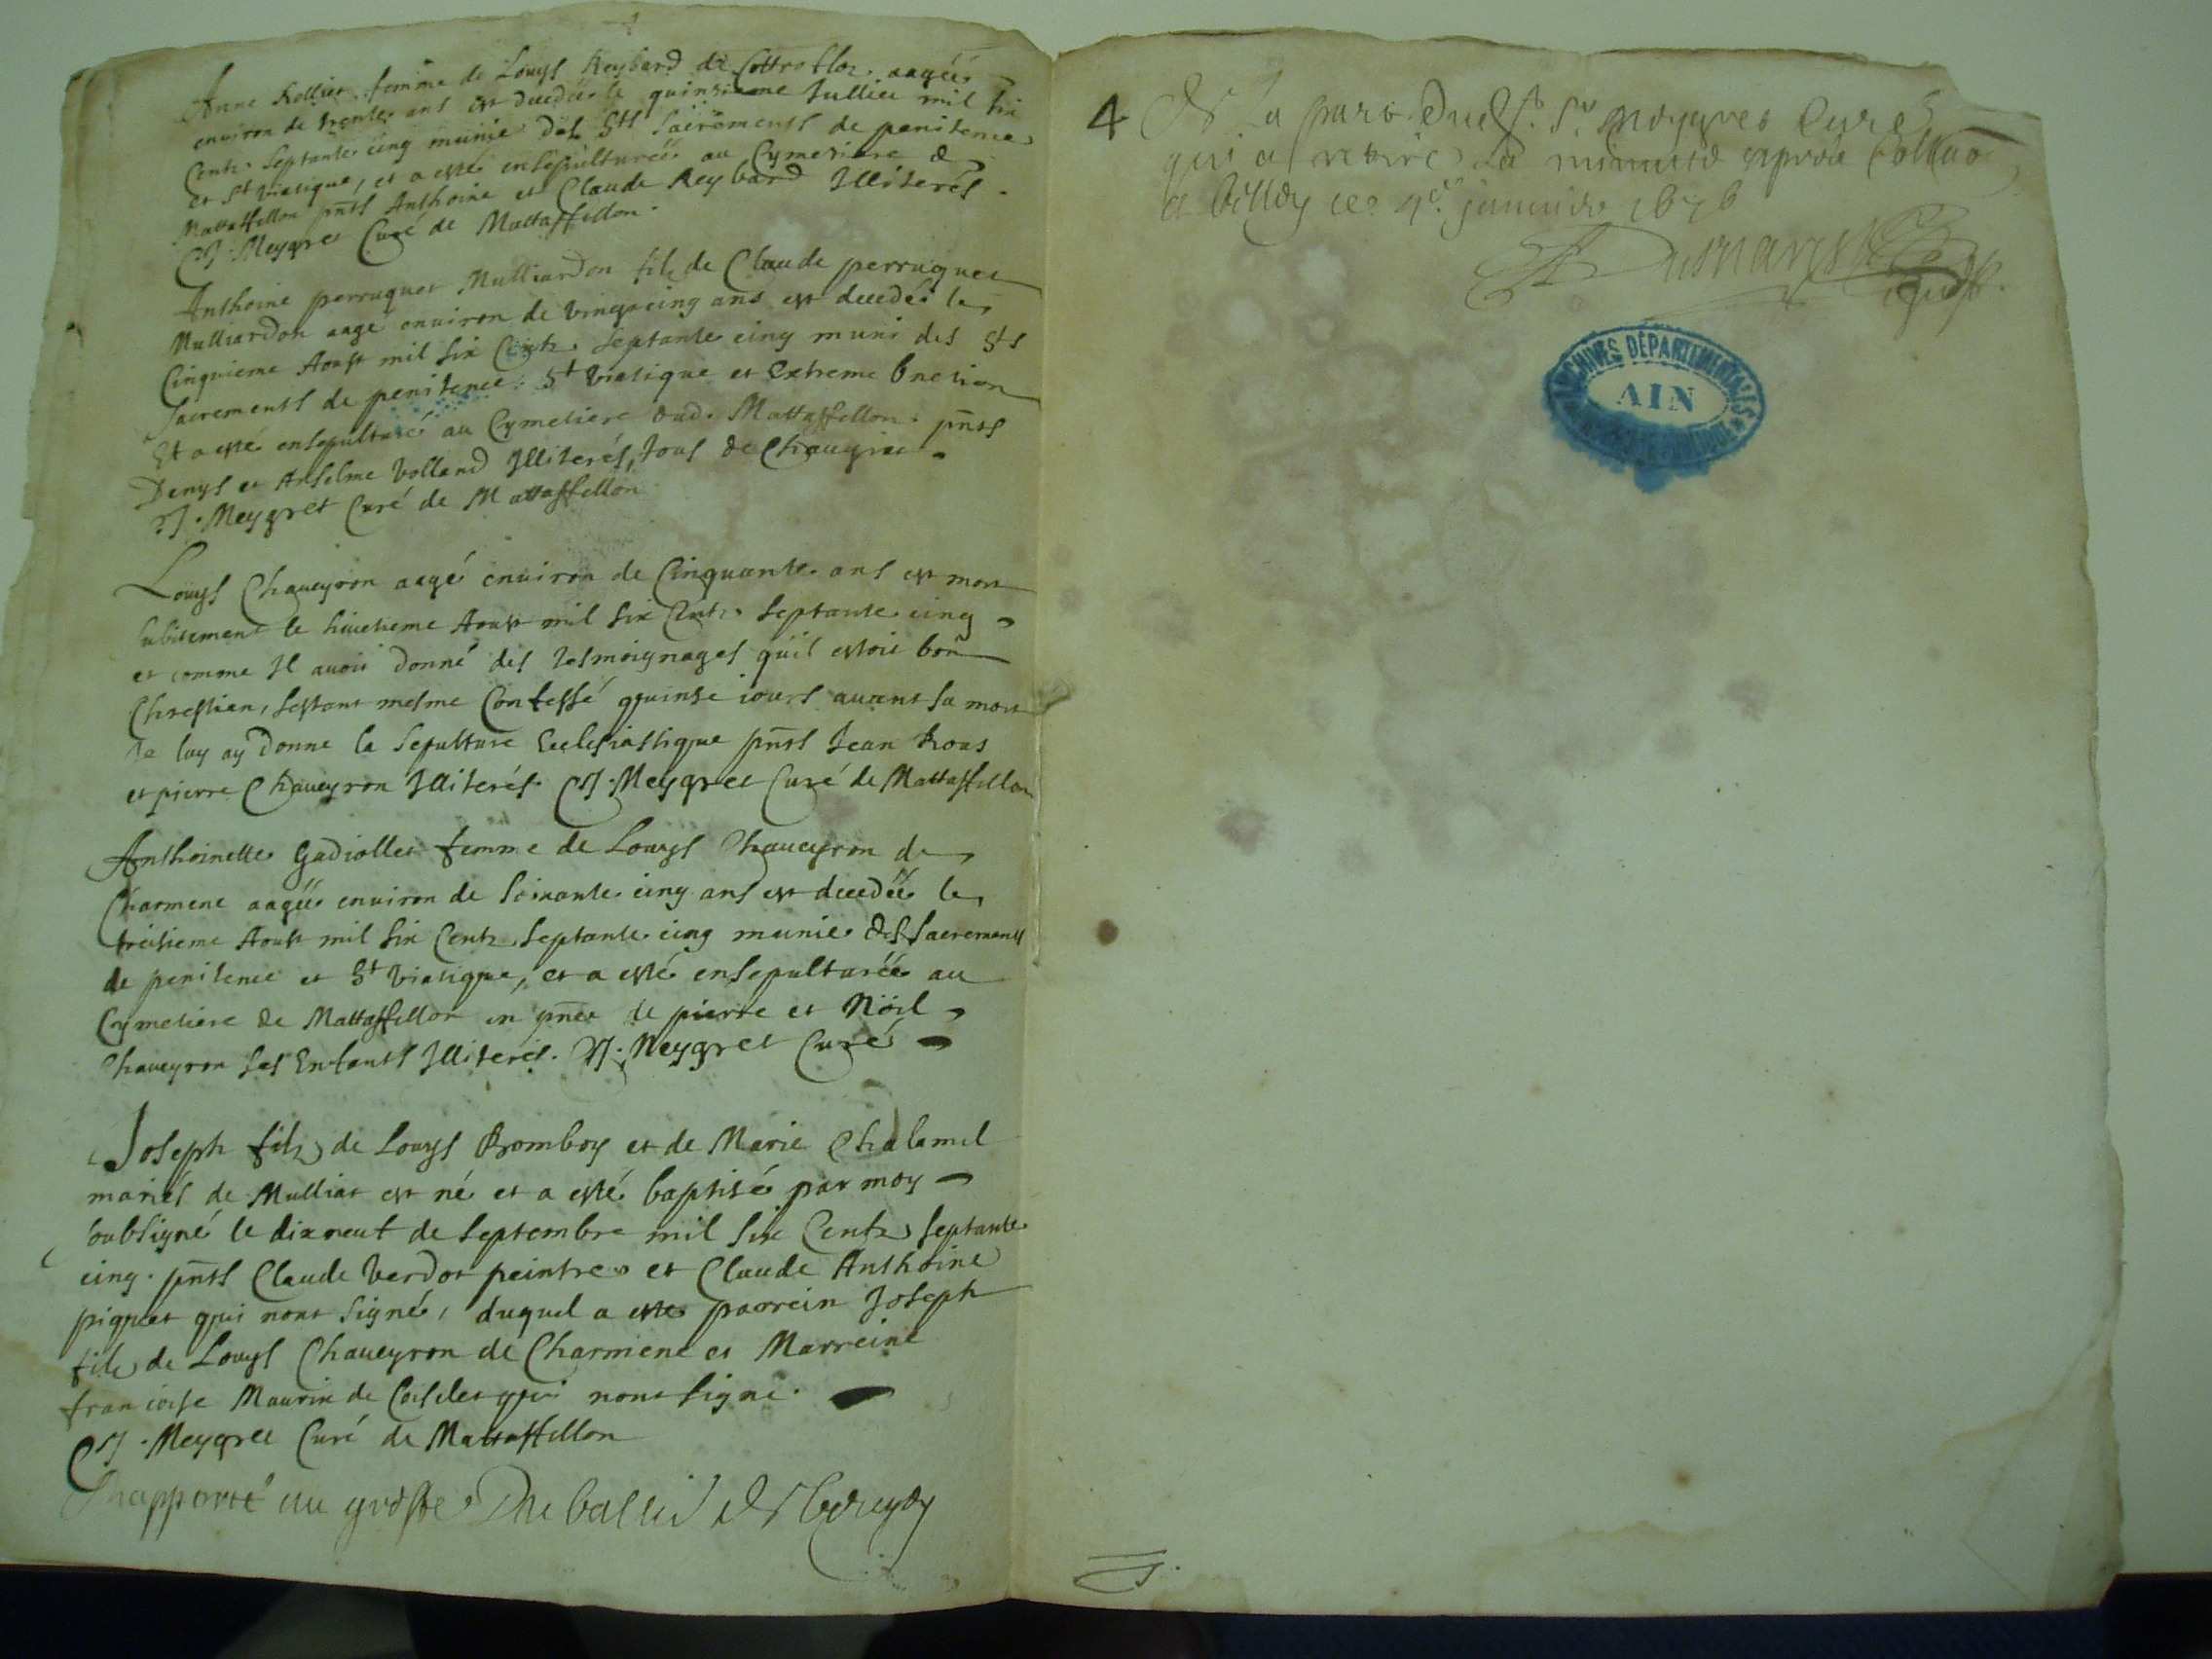 Anne Rollier femme de Louys Reybard de aagéé
environ de trente ans est decedée le quinsieme Jullier mil six
Centz septante cinq munie des Sts Sacrements de penitence
et St Viatique, et a esté ensepulturéé au Cymetiere de
Mattaffellon pnts Anthoine et Claude Reybard Illiterés.
Meygret Curé de Mattaffellon.
Anthoine perruquet Mulliardon fils de Claude perruquet
Mulliardon aagé enuiron de vingtcinq ans est decedé le
Cinquieme Aoust mil six Centz septante cinq muni des Sts
Sacrements de penitence: St Viatique et Extreme Unction
Et a esté ensepulturé au Cymetiere dud. Mattaffellon. pnts
Denys et Anselme Volland Illiterés, tous de
Meygret Curé de Mattaffellon
Louys Chaueyron aagé enuiron de Cinquante ans est mort
subitement le huictieme Aoust mil six Centz septante cinq
et comme Il auoit donné des tesmoignages quil estoit bon
Chrestien, sestant mesme Confessé quinse iours auant sa mort
Je luy ay donne la sepulture Ecclesiastique pnts Jean Rous
et pierre Chaueyron Illiterés. Meygret Curé de Mattaffellon
Anthoinette Gadiollet femme de Louys Chaueyron de
Charmene aagéé enuiron de soixante cinq ans est decedéé le
treisieme Aoust mil six Centz septante cinq munie des Sacrements
de penitence et St Viatique, et a esté ensepulturéé au
Cymetiere de Mattaffellon en pnce de pierre et Nöel
Chaueyron ses Enfants Illiterés. Meygret Curé
Joseph filz de Louys Bromboy et de Marie Chalamel
mariés de Mulliat est né et a esté baptisé par moy
soubsigné le dixneuf de Septembre mil six Centz septante
cinq. pnts Claude Verdot peintre et Claude Anthoine
piquet qui nont signé, duquel a esté parrein Joseph
filz de Louys Chaueyron de Charmene et Marreine
francoise Maurin de qui nont signe.
Meygret Curé de Mattaffellon
Rapporté au greffe Du balliage
4 De la part dud. Sr. Meygret Curé
qui a retiré la minutte apres
a ce janvier 1676
ARCHIVES DÉPARTEMENTALES
AIN